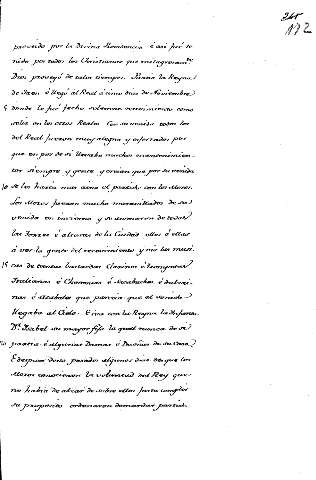 245
172
proveido por la divina Clemencia e asi fue te
nido por todos los Christianos que milagrosamte.
Dios proveyó de tales tiempos. Partió la Reyna
de Jaen é llegó al Real á cinco dias de Noviembre
5 donde le fué fecho solemne recevimiento como
solia en los otros Reales. Con su venida todos los
del Real fueron muy alegres y esforzados por
que en pos de sí llevaba muchos
siempre y gente y creian que por su venida
10 se les haria mas aina el partido con los Moros.
Los Moros fueron mucho maravillados de su
venida en invierno y se asomaron de todas
las torres é alturas de la Ciudad ellos é ellas
á ver la gente del recevimiento y oir las musi
15 cas de tantas bastardas Clarines é trompetas
Italianas é Cheremias é Sacabuches é dulzai
nas é Atabales que parecia que el sonido
llegaba al Cielo. E iva con la Reyna la Infanta
Dª. Isabel su mayor fija la qual nunca de sí
20 partia é algunas Damas é Dueñas de su Casa.
E despues desto pasados algunos dias desque los
Moros conocieron la voluntad del Rey que
no habia de alzar de sobre ellos fasta cumplir
su proposito ordenaron demandar partido.